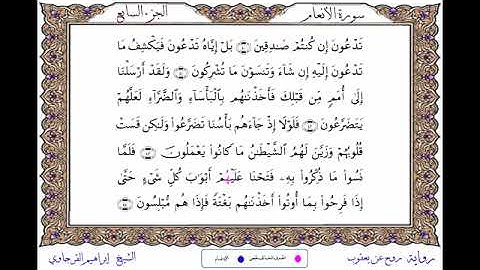 سورة الأنعام
الجزء السابع
تَدْعُونَ إِن كُنتُمْ صَٰدِقِينَ بَلْ إِيَّاهُ تَدْعُونَ فَيَكْشِفُ مَا
تَدْعُونَ إِلَيْهِ إِن شَآءَ وَتَنسَوْنَ مَا تُشْرِكُونَ وَلَقَدْ أَرْسَلْنَآ
إِلَىٰٓ أُمَمٍ مِّن قَبْلِكَ فَأَخَذْنَٰهُم بِٱلْبَأْسَآءِ وَٱلضَّرَّآءِ لَعَلَّهُمْ
يَتَضَرَّعُونَ فَلَوْلَآ إِذْ جَآءَهُم بَأْسُنَا تَضَرَّعُوا۟ وَلَٰكِن قَسَتْ
قُلُوبُهُمْ وَزَيَّنَ لَهُمُ ٱلشَّيْطَٰنُ مَا كَانُوا۟ يَعْمَلُونَ فَلَمَّا
نَسُوا۟ مَا ذُكِّرُوا۟ بِهِۦ فَتَحْنَا عَلَيْهُمْ أَبْوَٰبَ كُلِّ شَىْءٍ حَتَّىٰٓ
إِذَا فَرِحُوا۟ بِمَآ أُوتُوٓا۟ أَخَذْنَٰهُم بَغْتَةً فَإِذَا هُم مُّبْلِسُونَ
رواية روح عن يعقوب
الشيخ إبراهيم الفرجاوي